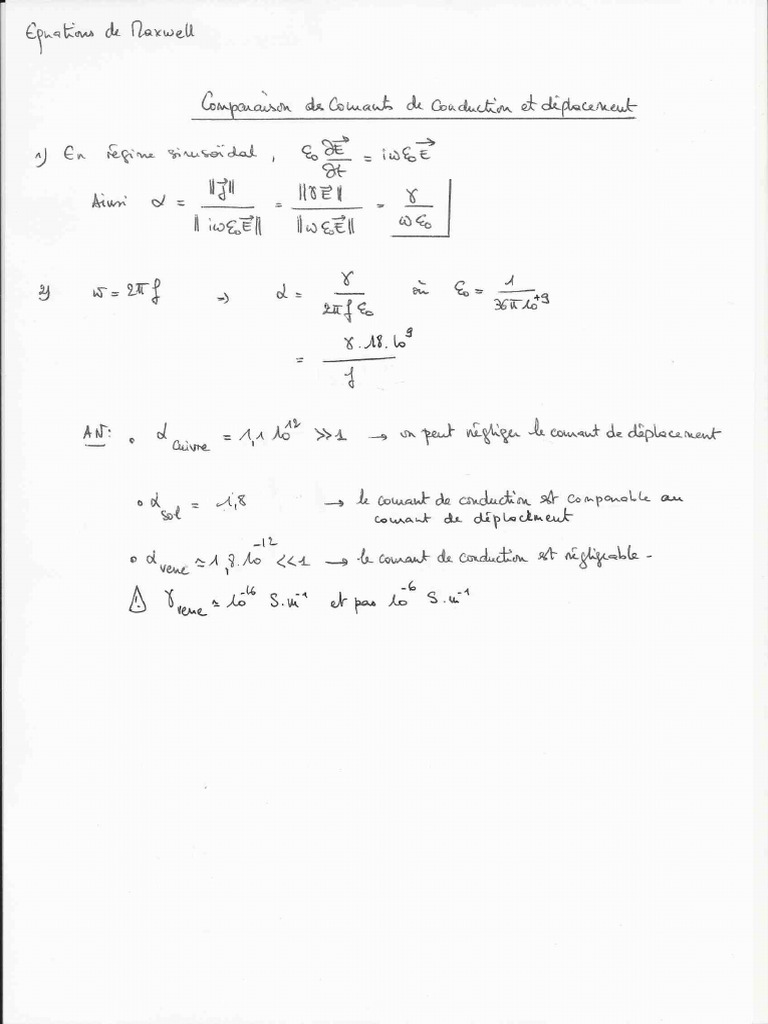 Equations de Maxwell
Comparaison des Courants de Conduction et déplacement
1) En régime sinusoïdal, ε₀ ∂E⃗/∂t = iωε₀E⃗
Ainsi α = ||j⃗|| / ||iωε₀E⃗|| = ||γE⃗|| / ||ωε₀E⃗|| = γ / ωε₀
2) ω = 2πf → α = γ / 2πfε₀ où ε₀ = 1 / 36π10⁺⁹
= γ.18.10⁹ / f
AN: • α_cuivre = 1,1 10¹² >> 1 → on peut négliger le courant de déplacement
• α_sol = 1,8 → le courant de conduction est comparable au
courant de déplacement
• α_verre ≃ 1,8.10⁻¹² << 1 → le courant de conduction est négligeable.
⚠ γ_verre ≃ 10⁻¹⁶ S.m⁻¹ et pas 10⁻⁶ S.m⁻¹